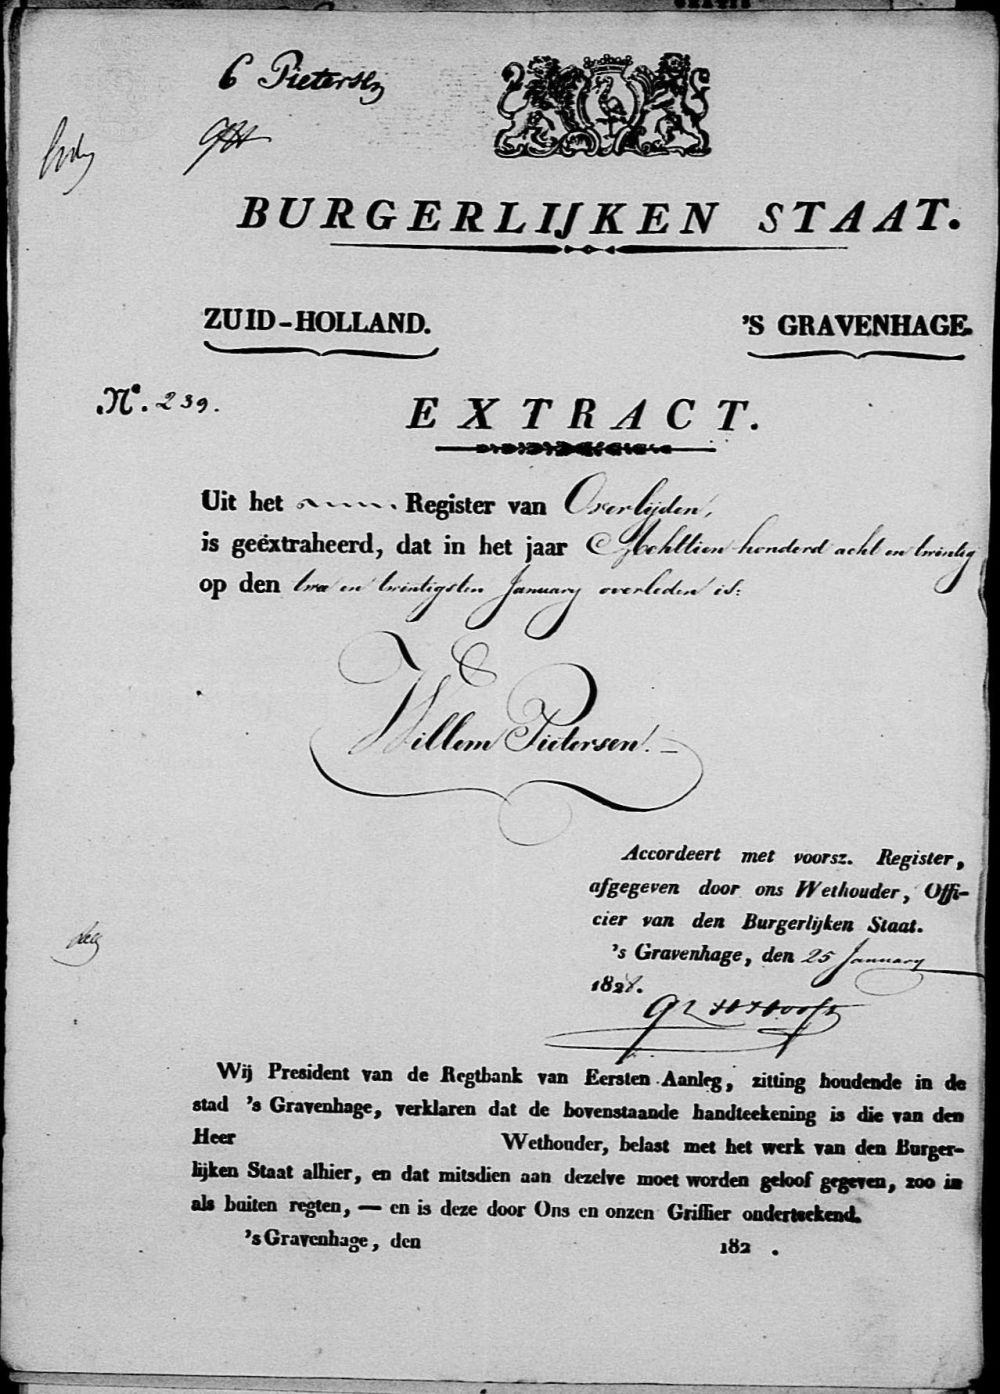 6 Pietersen
BURGERLIJKEN STAAT.
ZUID-HOLLAND.
'S GRAVENHAGE.
No. 239.
EXTRACT.
Uit het Register van Overlijden,
is geëxtraheerd, dat in het jaar Achttien honderd acht en twintig
op den twee en twintigsten January overleden is:
Willem Pietersen.
Accordeert met voorsz. Register,
afgegeven door ons Wethouder, Offi-
cier van den Burgerlijken Staat.
's Gravenhage, den 25 January
1828.
Wij President van de Regtbank van Eersten Aanleg, zitting houdende in de
stad 's Gravenhage, verklaren dat de bovenstaande handteekening is die van den
Heer Wethouder, belast met het werk van den Burger-
lijken Staat alhier, en dat mitsdien aan dezelve moet worden geloof gegeven, zoo in
als buiten regten, — en is deze door Ons en onzen Griffier onderteekend.
's Gravenhage, den 182 .